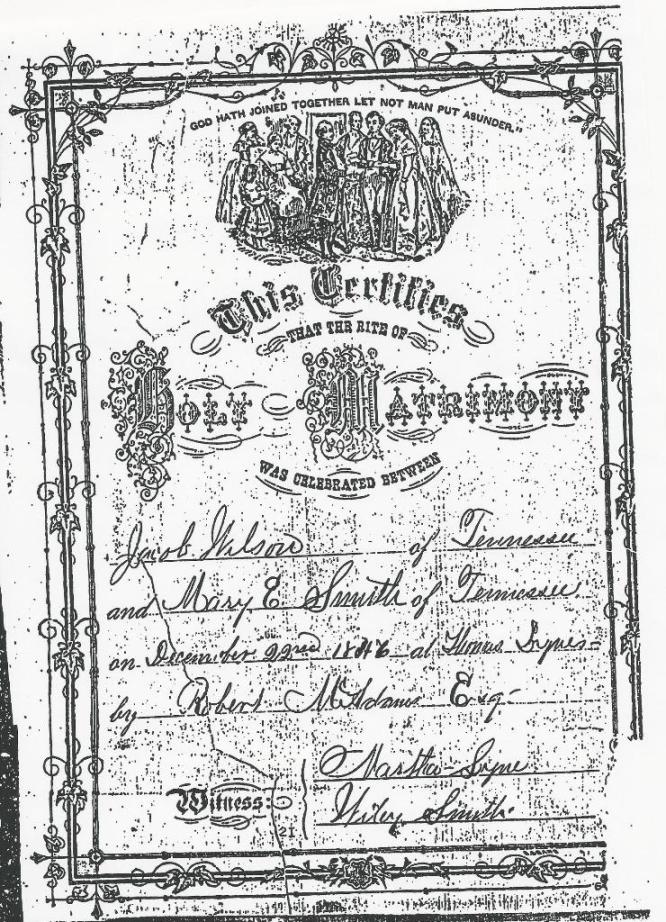 GOD HATH JOINED TOGETHER LET NOT MAN PUT ASUNDER."
This Certifies
THAT THE RITE OF
HOLY MATRIMONY
WAS CELEBRATED BETWEEN
Jacob Wilson of Tennessee
and Mary E Smith of Tennessee.
on December 22nd 1846 at Thomas
by Robert McAdams Esq.
Witness:
Martha
Wiley Smith.
21